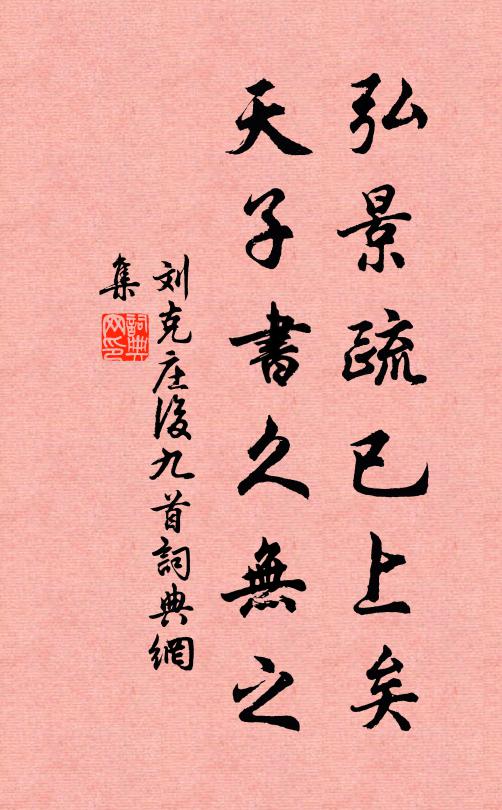 弘景疏已上矣
天子書久無之
刘克庄後九首詞典網
集
詞典网印